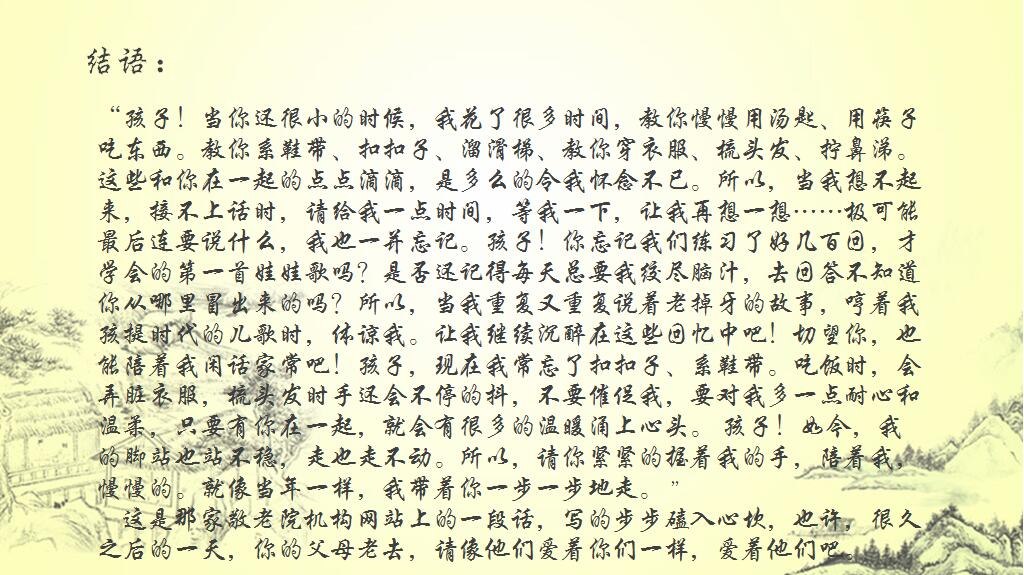 结语：
“孩子！当你还很小的时候，我花了很多时间，教你慢慢用汤匙、用筷子
吃东西。教你系鞋带、扣扣子、溜滑梯、教你穿衣服、梳头发、拧鼻涕。
这些和你在一起的点点滴滴，是多么的令我怀念不已。所以，当我想不起
来，接不上话时，请给我一点时间，等我一下，让我再想一想……极可能
最后连要说什么，我也一并忘记。孩子！你忘记我们练习了好几百回，才
学会的第一首娃娃歌吗？是否还记得每天总要我绞尽脑汁，去回答不知道
你从哪里冒出来的吗？所以，当我重复又重复说着老掉牙的故事，哼着我
孩提时代的儿歌时，体谅我。让我继续沉醉在这些回忆中吧！切望你，也
能陪着我闲话家常吧！孩子，现在我常忘了扣扣子、系鞋带。吃饭时，会
弄脏衣服，梳头发时手还会不停的抖，不要催促我，要对我多一点耐心和
温柔，只要有你在一起，就会有很多的温暖涌上心头。孩子！如今，我
的脚站也站不稳，走也走不动。所以，请你紧紧的握着我的手，陪着我，
慢慢的。就像当年一样，我带着你一步一步地走。”
这是那家敬老院机构网站上的一段话，写的步步磕入心坎，也许，很久
之后的一天，你的父母老去，请像他们爱着你们一样，爱着他们吧。